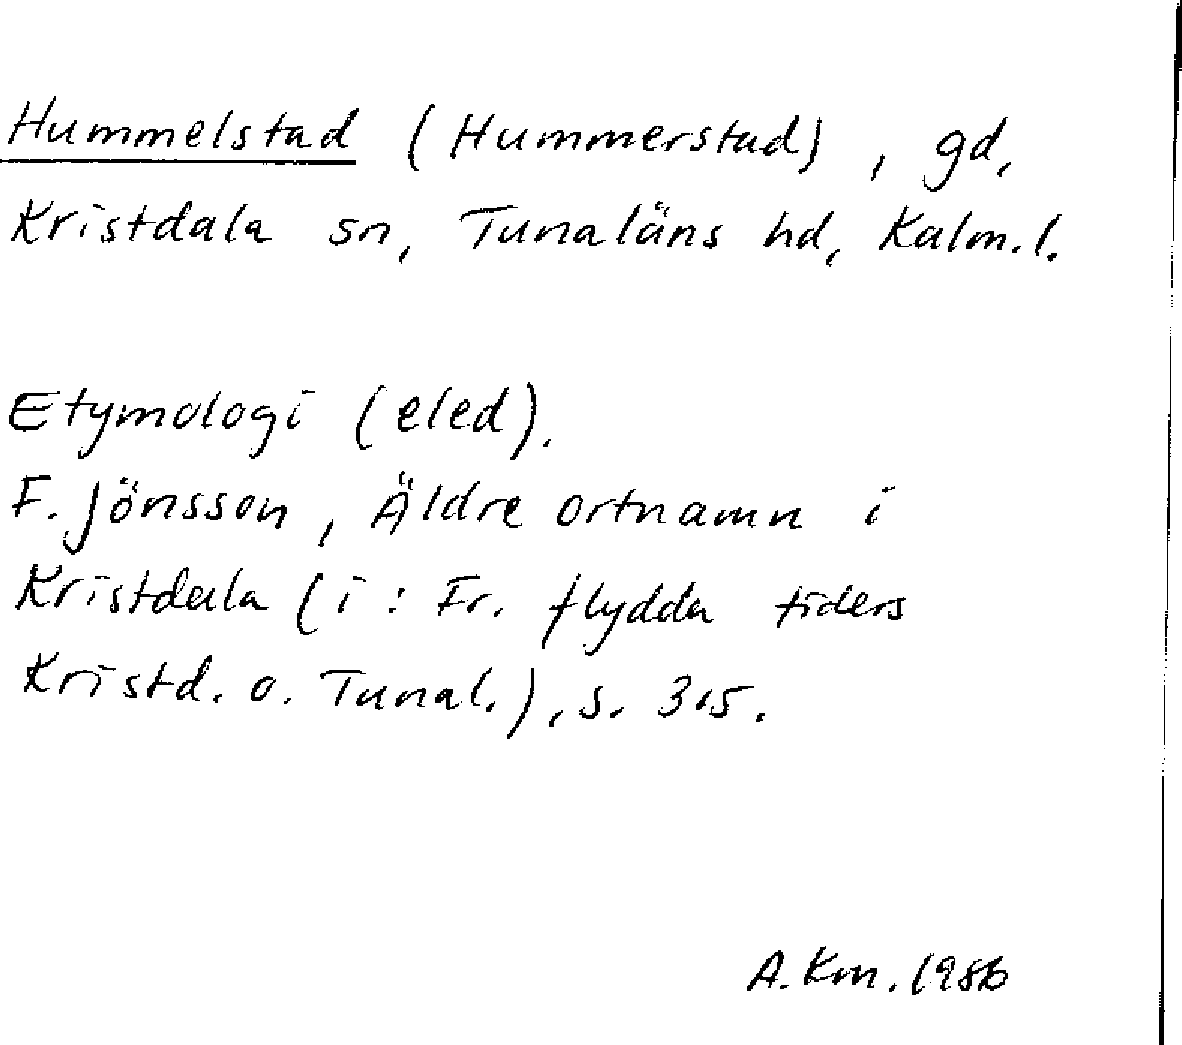 Hummelstad (Hummerstad), gd,
Kristdala sn, Tunaläns hd, Kalm.l.
Etymologi (eled).
F. Jönsson, Äldre ortnamn i
Kristdala (i: Fr. flydda tiders
Kristd. o. Tunal.), s. 315.
A. Km. 1986